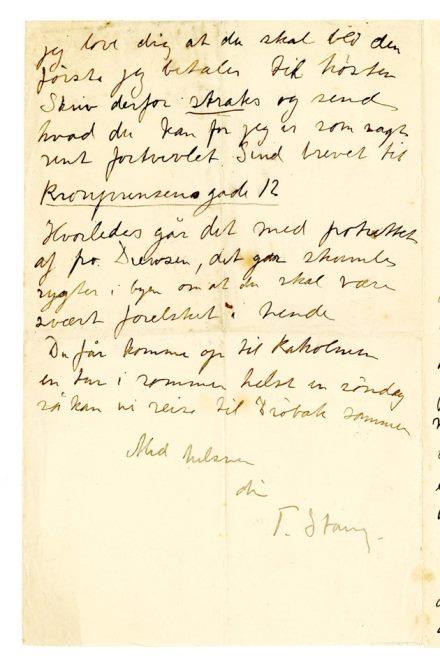 jeg love dig at du skal bli den
første jeg betaler til høsten
Skriv derfor straks og send
hvad du kan for jeg er som sagt
rent fortvivlet Send brevet til
Kronprinsensgade 12
Hvorledes går det med portrættet
af fru Drewsen, det går skumle
rygter i byen om at du skal være
svært forelsket i hende
Du får komme op til Kaholmen
en tur i sommer helst en søndag
så kan vi reise til Drøbak sammen
Med hilsen
din
T. Stang.